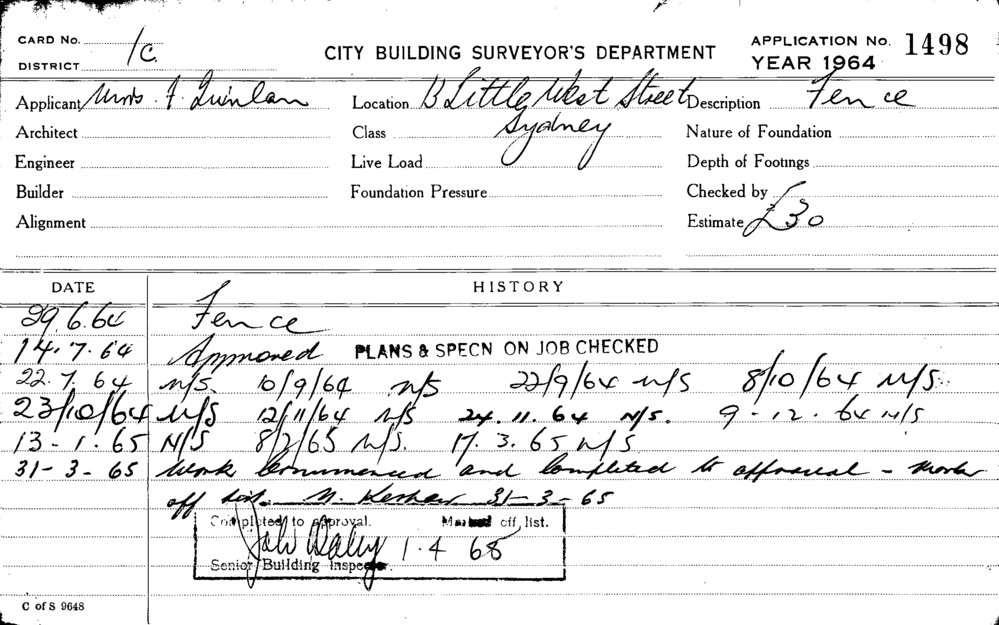 CARD No. 1c. CITY BUILDING SURVEYOR'S DEPARTMENT APPLICATION No. 1498
DISTRICT YEAR 1964
Applicant F. Quinlan Location 13 Little West Street Description Fence
Architect Class Sydney Nature of Foundation
Engineer Live Load Depth of Footings
Builder Foundation Pressure Checked by
Alignment Estimate £30
DATE HISTORY
29.6.64 Fence
14.7.64 Approved PLANS & SPECN ON JOB CHECKED
22.7.64 N/S. 10/9/64 N/S 22/9/64 N/S 8/10/64 N/S.
23/10/64 N/S 12/11/64 N/S 24.11.64 N/S. 9-12.64 N/S
13-1.65 N/S 8/2/65 N/S. 17.3.65 N/S
31-3-65 Work Commenced and Completed to approval - mark
off list. 31-3-65
Completed to approval. Marked off list.
John Daley 1.4 65
Senior Building Inspector.
C of S 9648